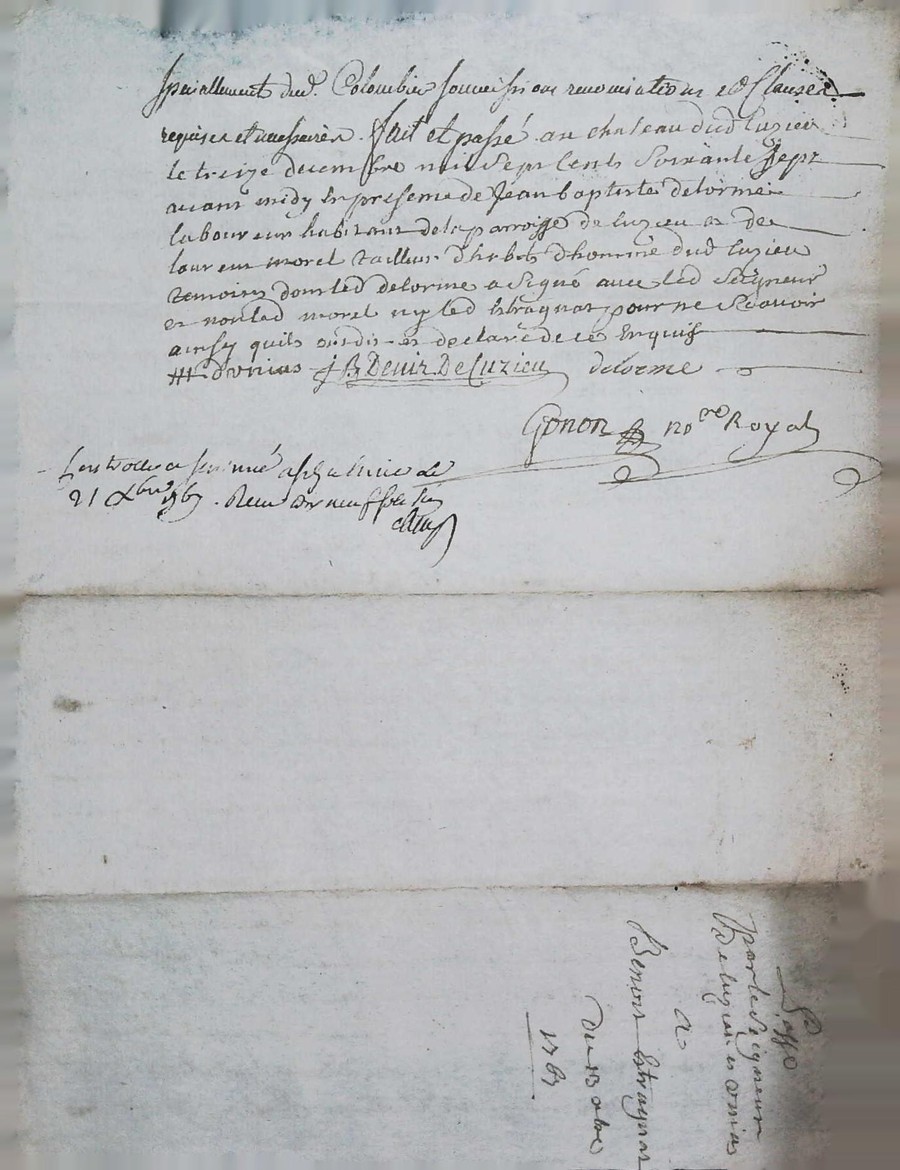 speciallement dud. Colombier soumissions renonciations et Clauses
requises et necessaires. fait et passé au chateau dud Cuzieu
le treize decembre mil sept cents soixante sept
avant midy en presence de Jean baptiste delorme
laboureur habitant de la parroisse de Cuzieu et de
laurent morel tailleur d'habits d'homme dud Cuzieu
temoins dont led delorme a signé avec led Seigneur
et non led morel ny led Estragnat pour ne Scavoir
ainsy quils ont dit et declaré de ce Enquis
d'unias J B Denis De Cuzieu delorme
Gonon no.re Royal
Controllé a
21 Xbre 1767. Receu neuf sols
Lasse
par le Seigneur
De Cuzieu et unias
a
Benoit Estragnat
Du 13 xbre
1767